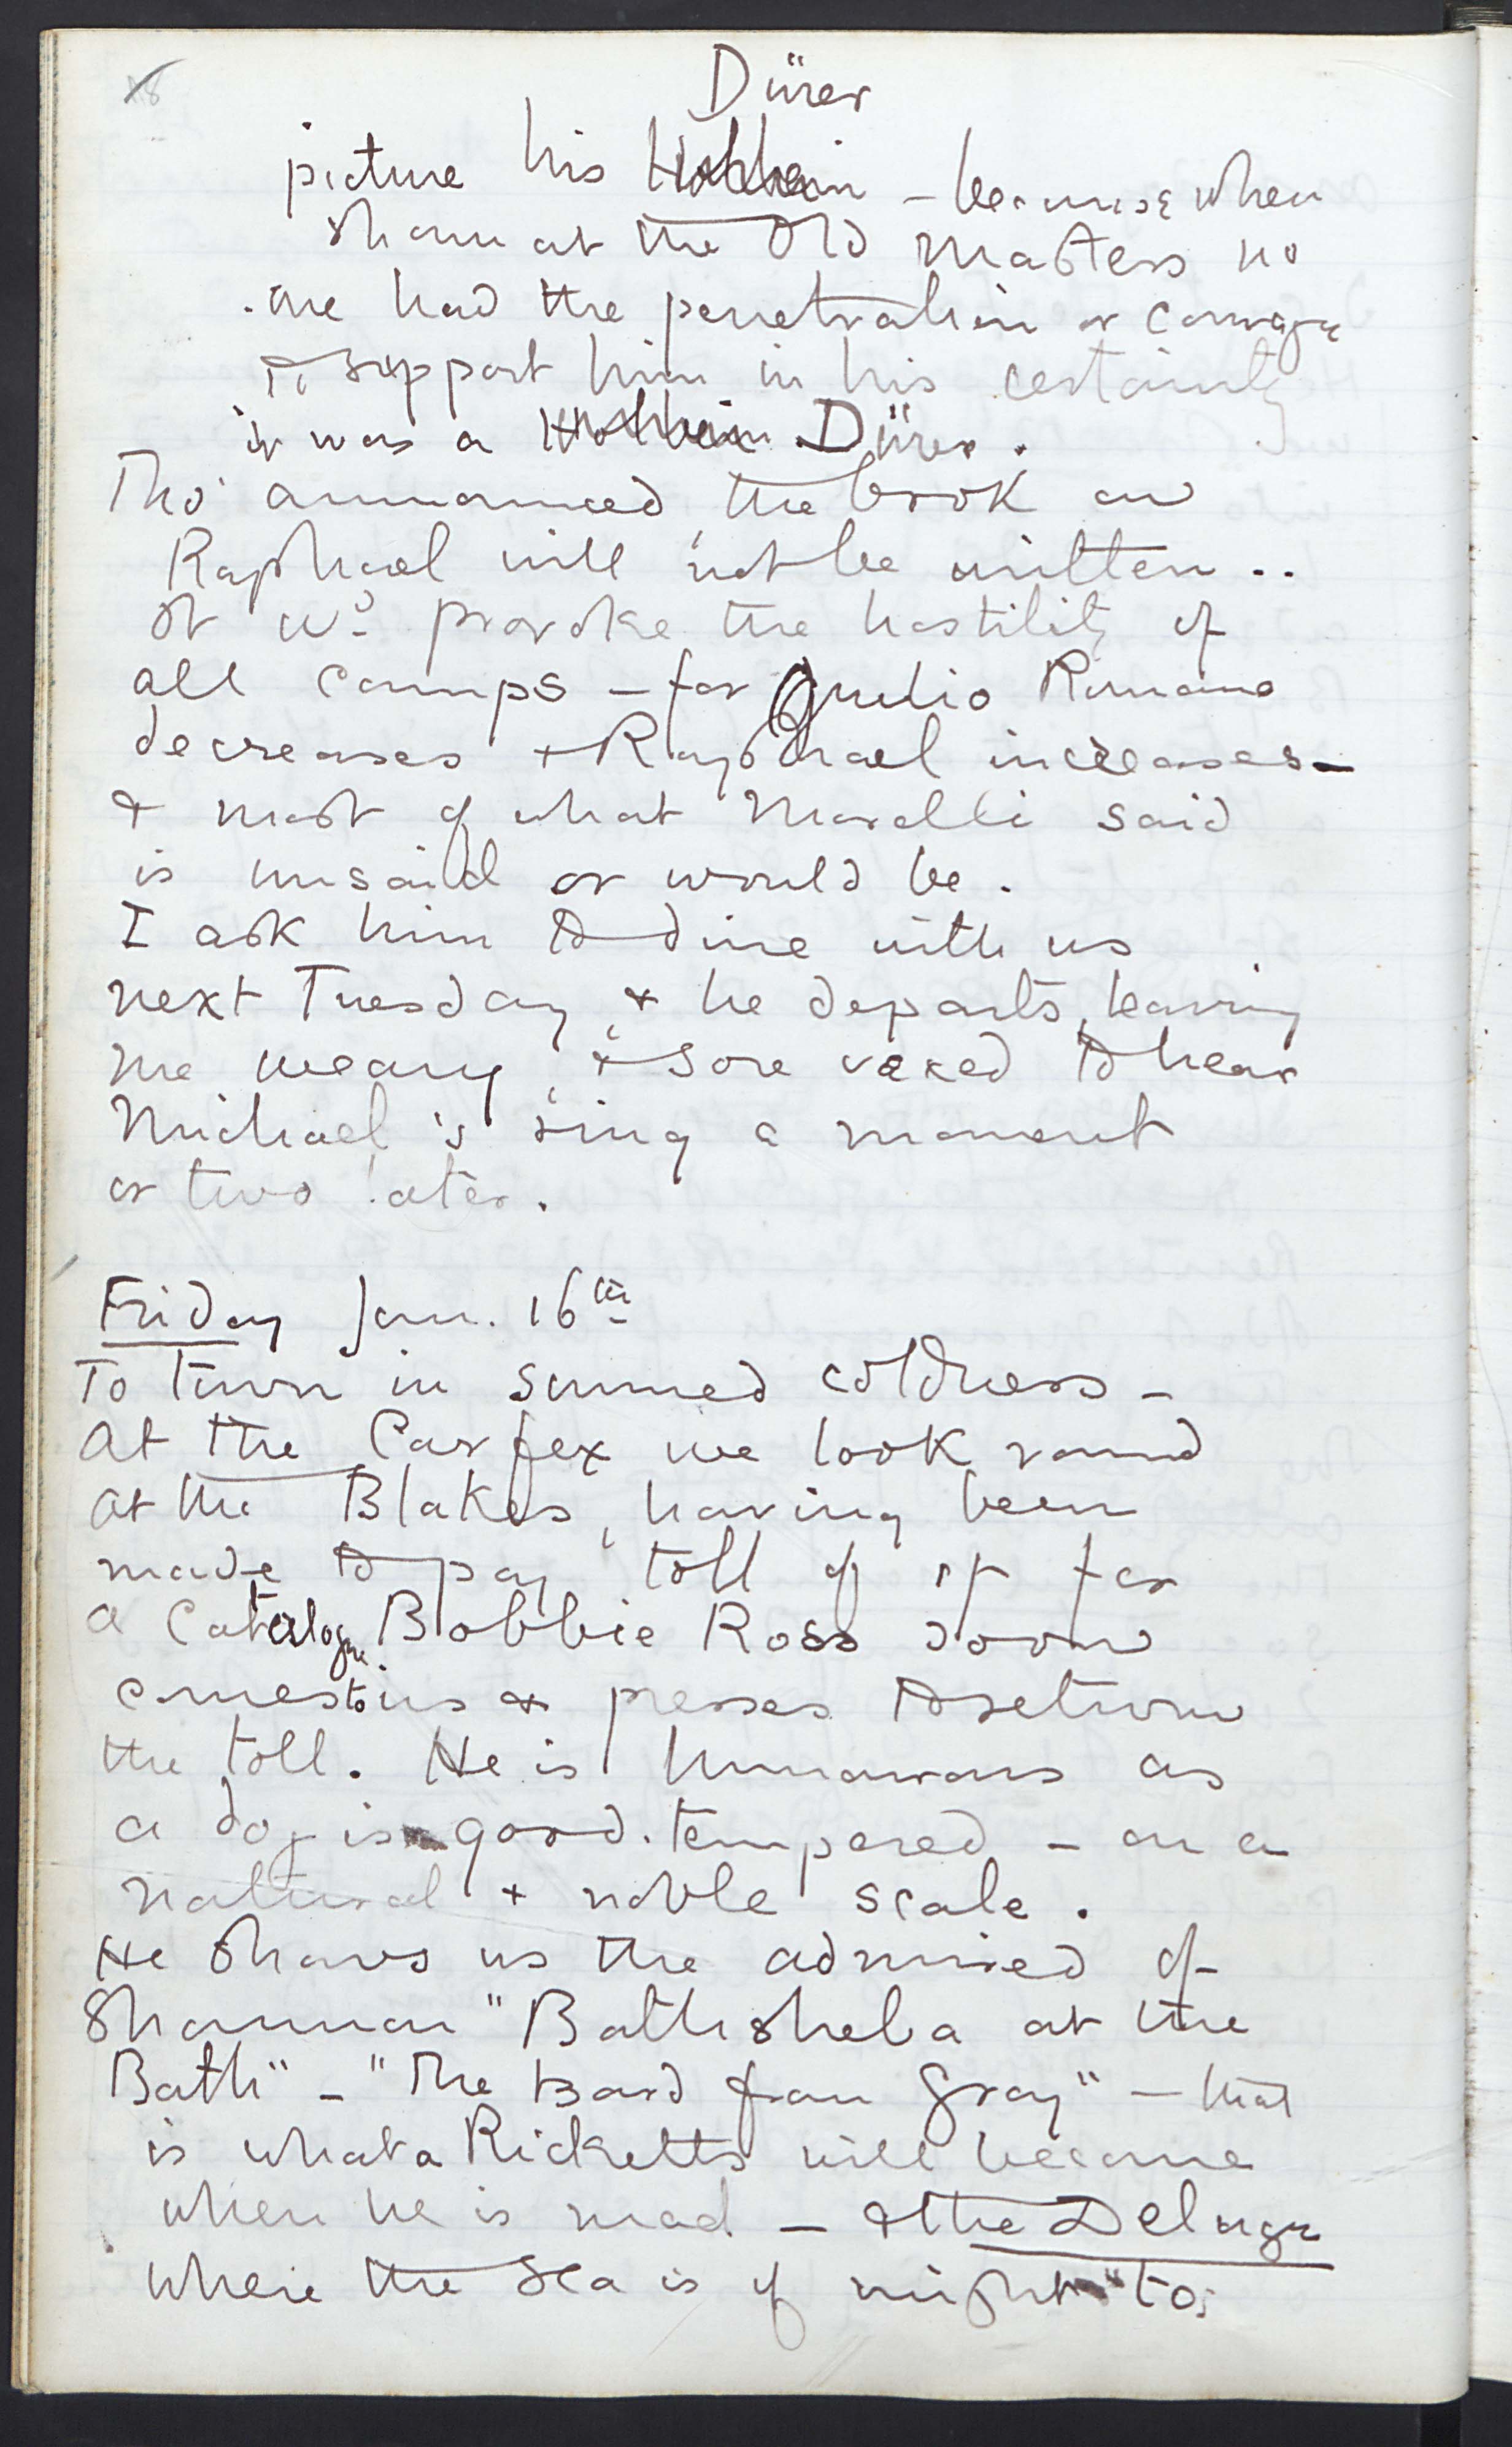 18
Dürer
picture his Holbein – because when
shown at the Old Masters no
one had the penetration or courage
to support him in his certainty
it was a Holbein Dürer.
Tho' announced, the book on
Raphael will not be written ..
It wd provoke the hostility of
all camps – for Giulio Romano
decreases + Raphael increases –
& most of what Morelli said
is unsaid or would be.
I ask him to dine with us
next Tuesday, & he departs, leaving
me weary, & sore vexed to hear
Michael's ring a moment
or two later.
Friday Jan. 16th
To town in sunned coldness –
At the Carfex we look round
at the Blakes, having been
made to pay toll of 1/- for
a Catalogue. Bobbie Ross soon
comes to us & presses to return
the toll. He is humorous as
a dog is good-tempered – on a
natural + noble scale.
He shows us the admired of
Shannon "Bathsheba at the
Bath" – "The Bard from Gray" – that
is what a Ricketts will become
when he is mad – & the Deluge
where the sea is of might to